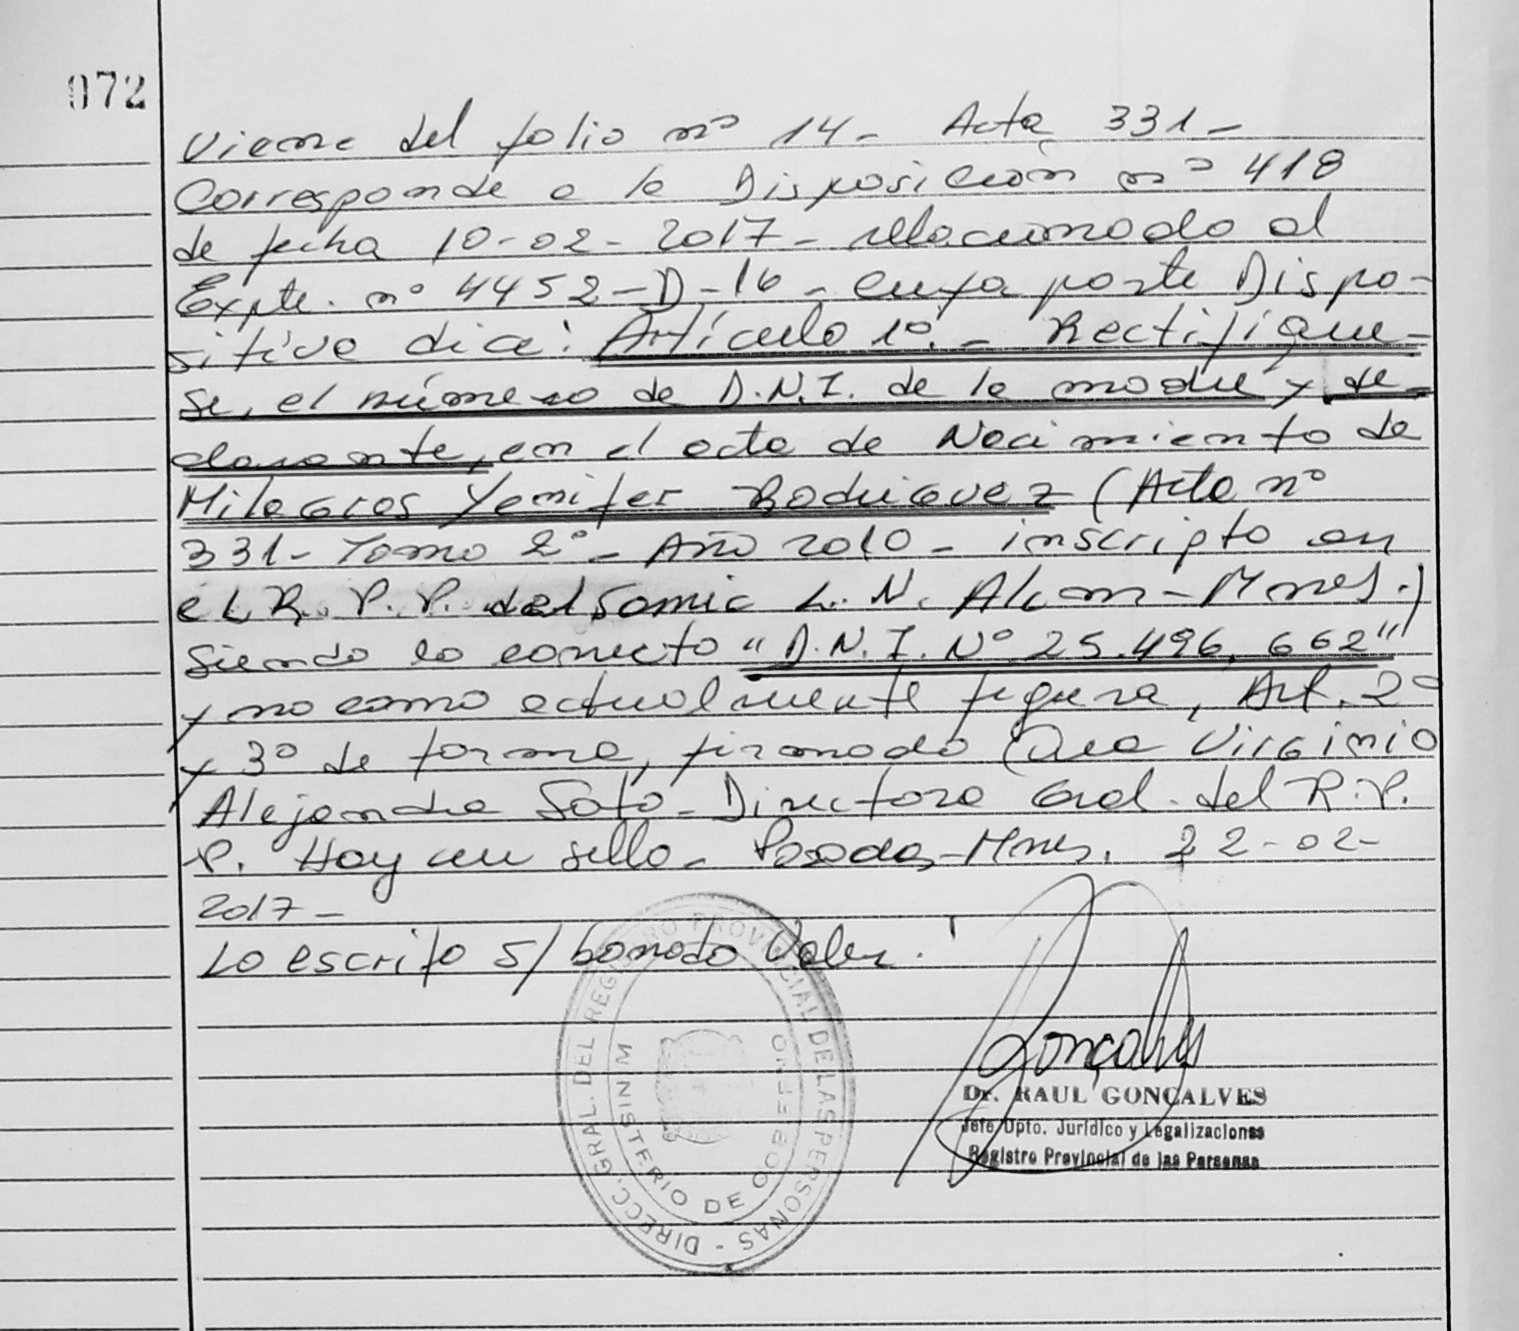 072
Viene del folio nº 14- Acta 331-
Corresponde a la Disposición nº 418
de fecha 10-02-2017- relacionado al
Expte. nº 4452-D-16- cuya parte Dispo-
sitiva dice: Artículo 1º.- Rectifíque-
se, el número de D.N.I. de la madre y de-
clarante, en el acta de Nacimiento de
Milagros Yenifer Rodriguez (Acta nº
331- Tomo 2º- Año 2010- inscripto en
el R. P. P. del Samic L. N. Alem- Mnes.)
Siendo lo correcto "D.N.I. Nº 25.496.662"
y no como actualmente figura, Art. 2º
y 3º de forma, firmado Dra Virginia
Alejandra Soto- Directora Gral. del R.P.
P. Hay un sello- Posadas-Mnes. 22-02-
2017-
Lo escrito s/ borrado Vale.
DIRECC. GRAL. DEL REGISTRO PROVINCIAL DE LAS PERSONAS -
MINISTERIO DE GOBIERNO
Gonçalves
Dr. RAUL GONÇALVES
Jefe Dpto. Jurídico y Legalizaciones
Registro Provincial de las Personas